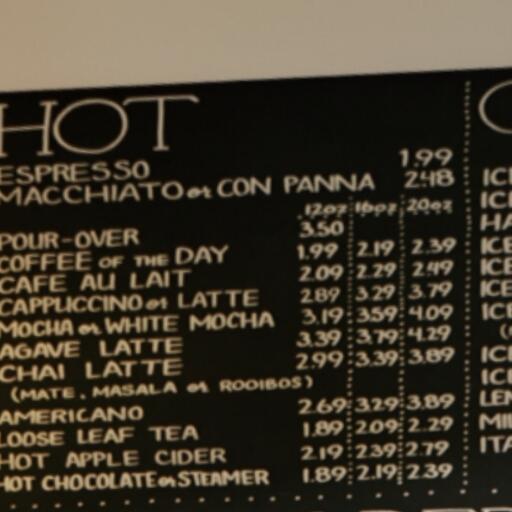 HOT
ESPRESSO 1.99
MACCHIATO or CON PANNA 2.48
12oz 16oz 20oz
POUR-OVER 3.50
COFFEE OF THE DAY 1.99 2.19 2.39
CAFE AU LAIT 2.09 2.29 2.49
CAPPUCCINO or LATTE 2.89 3.29 3.79
MOCHA or WHITE MOCHA 3.19 3.59 4.09
AGAVE LATTE 3.39 3.79 4.29
CHAI LATTE 2.99 3.39 3.89
(MATE, MASALA or ROOIBOS)
AMERICANO 2.69 3.29 3.89
LOOSE LEAF TEA 1.89 2.09 2.29
HOT APPLE CIDER 2.19 2.39 2.79
HOT CHOCOLATE or STEAMER 1.89 2.19 2.39